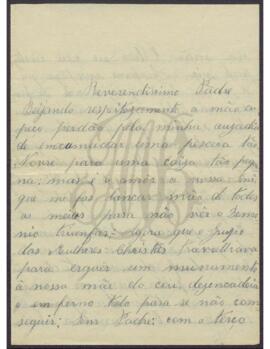 Reverendissimo Padre
Beijando respeitosamente a mão
peço perdão pela minha ousadia
de encomudar uma pessoa tão
Nobre para uma coisa tão peq
na: mas é o amôr a nossa
que me faz lançar mão de todos
os meios para não vêr o Demo
nio triunfar: agora que o
das Mulheres Christãs travalhava
para erguer um munumento
á nossa mãe do ceu desencadeia
o emferno tudo para se não com
seguir; Sem Padre: com o terço